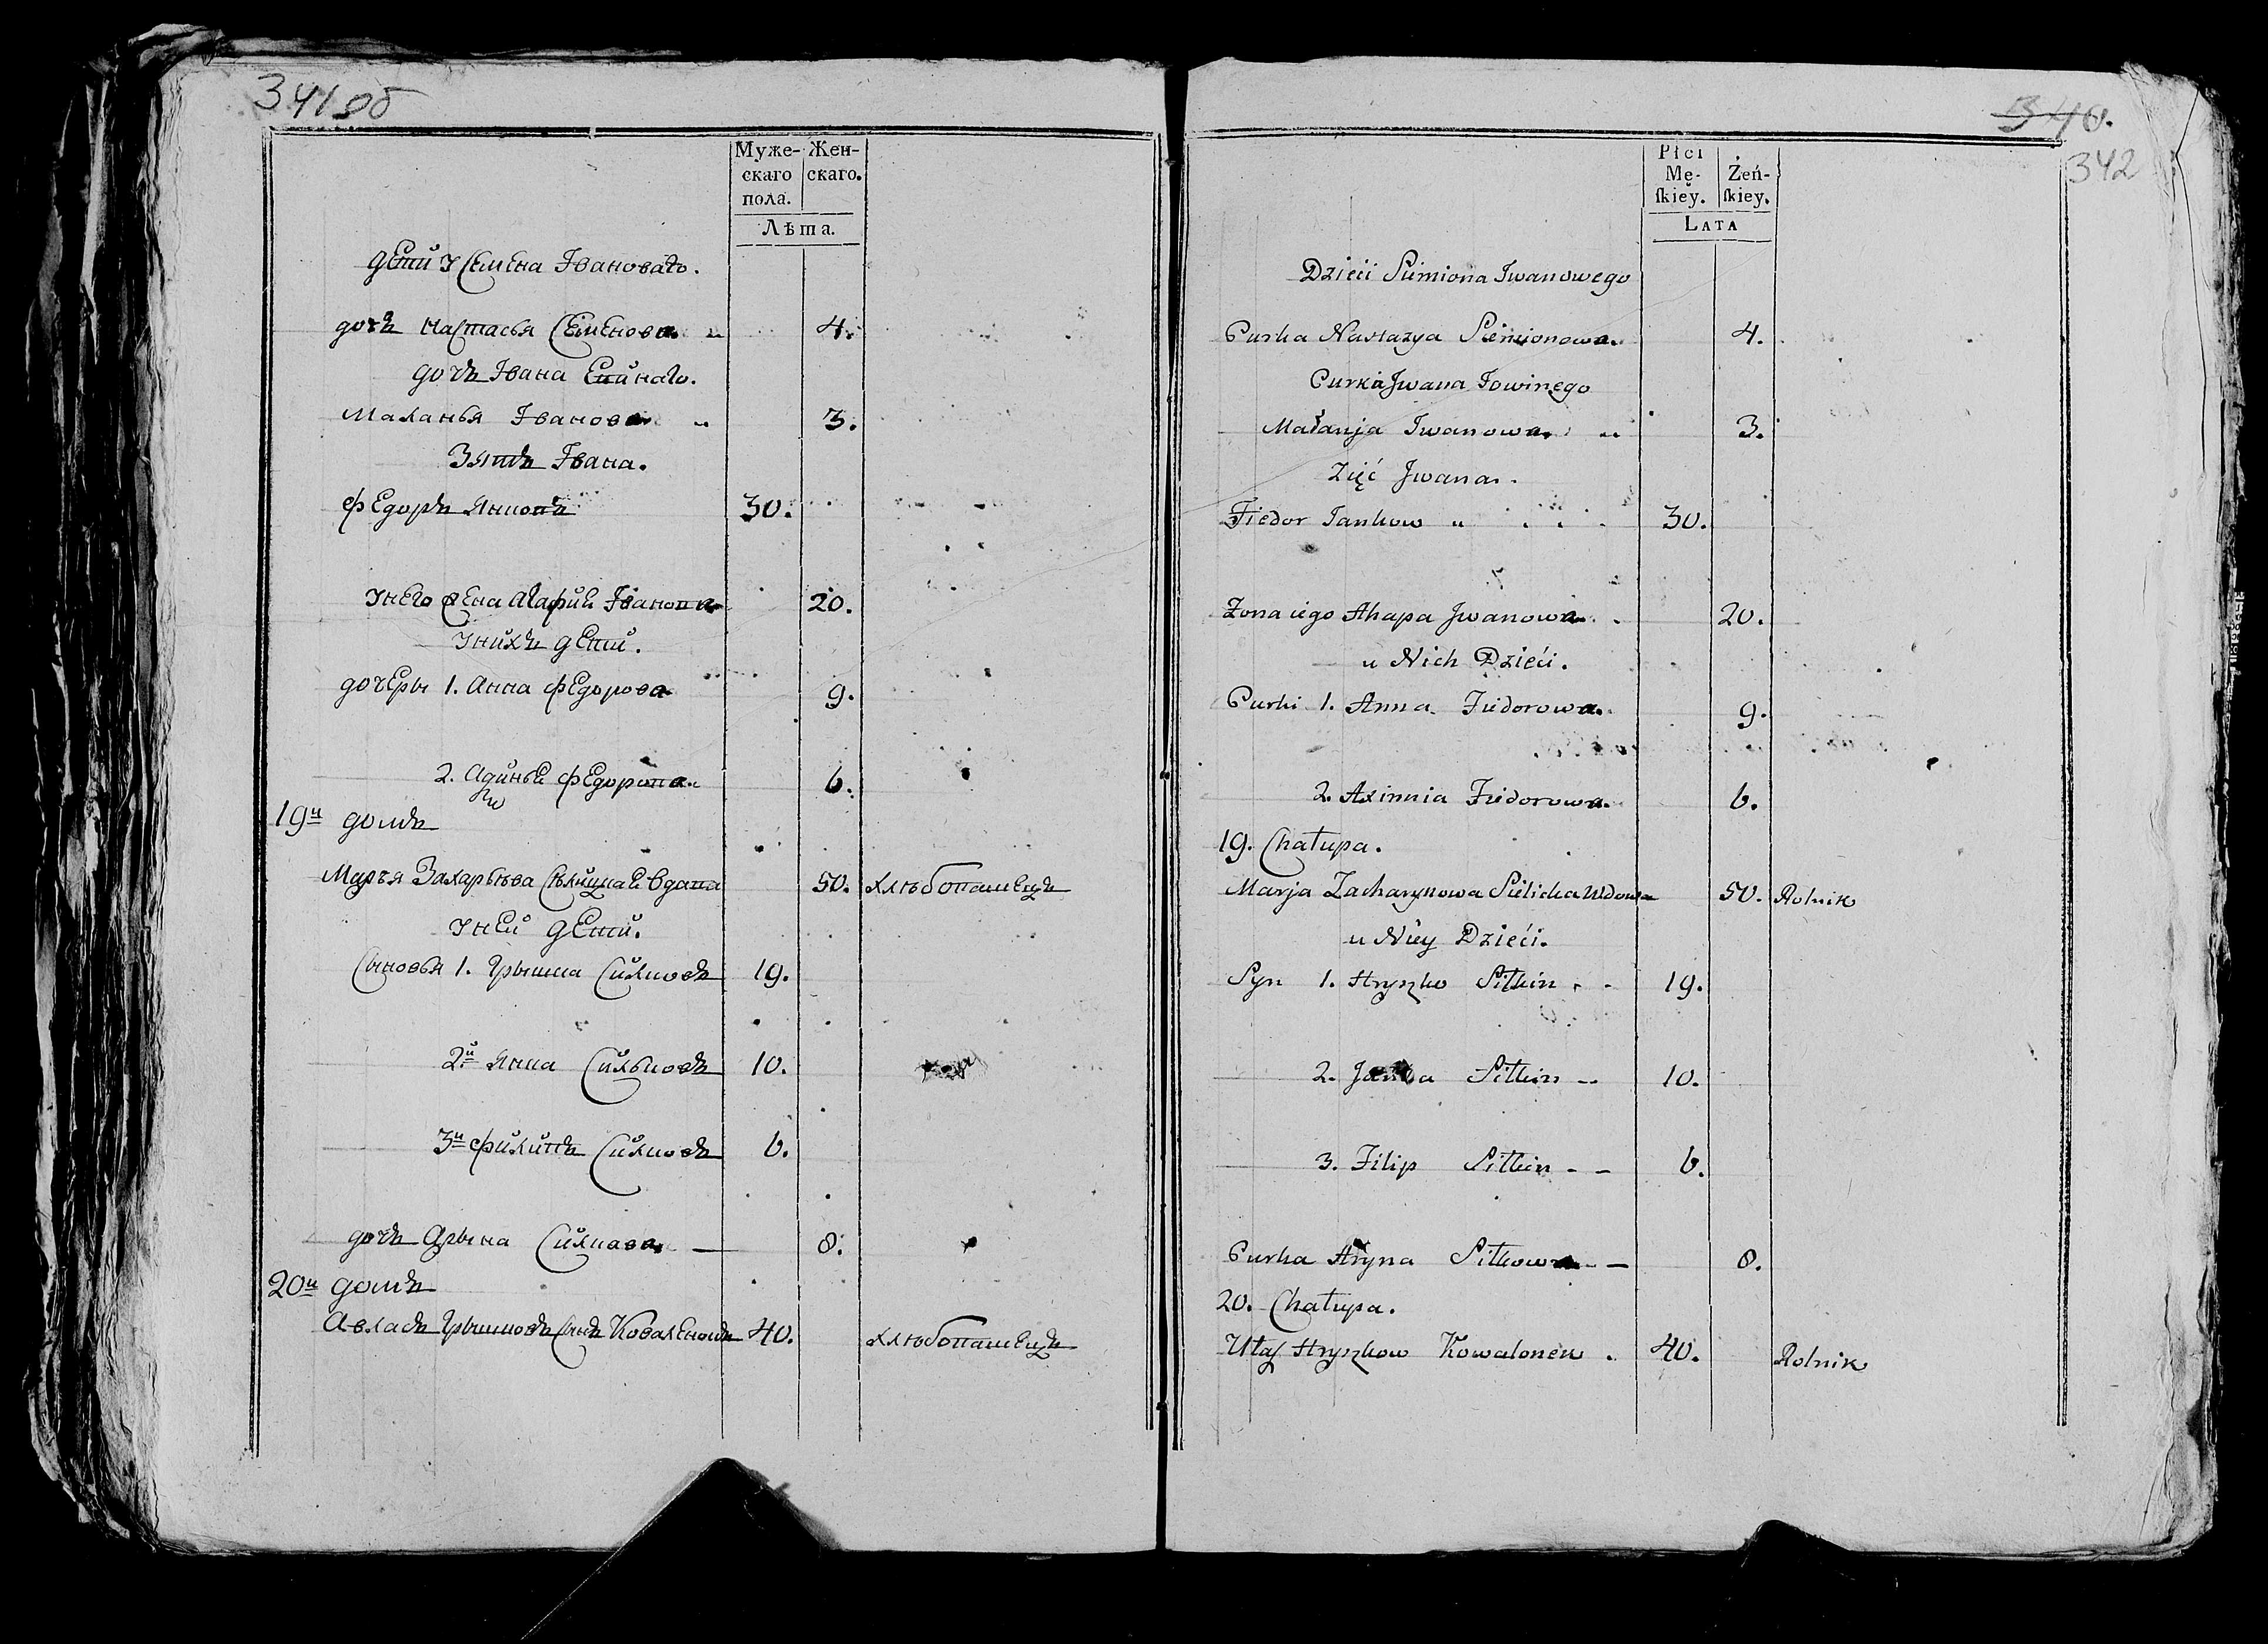 341об
Муже- Жен-
скаго скаго.
пола.
Лѣта.
дети у Семена Ивановаго.
дочь Настасья Семенова 4.
дочь Ивана
Маланья Иванова 3.
Зять Ивана.
Федоръ Янковъ 30.
у него жена Агафия Иванова 20.
у нихъ дети.
дочеры 1. Анна Федорова 9.
2. Федорова 6.
19й домъ
Марья Захарьева вдова 50. хлѣбопашецъ
у ней дети.
Сыновья 1. Грышка Силковъ 19.
2й Янка Сильковъ 10.
3й Филипъ Силковъ 6.
дочь Арына Силкова 8.
20й домъ
Авласъ Грышковъ сынъ Коваленокъ 40. хлѣбопашецъ
340.
342
Płci
Mę- Żeń-
ſkiey. ſkiey.
Lata
Dzieci Siemiona Iwanowego
Curka Nastazya Siemionowa 4.
Curka Jwana
Małanja Iwanowa 3.
Zięć Jwana.
Fiedor Jankow 30.
Zona iego Ahapa Jwanowa 20.
u Nich Dzieći.
Curki 1. Anna Fiedorowa 9.
2. Axinnia Fiedorowa 6.
19. Chałupa.
Marja Zacharynowa Sielicka Wdowa 50. Rolnik
u Niey Dzieći.
Syn 1. Hryszko Siłkin 19.
2. Siłkin 10.
3. Filip Siłkin 6.
Curka Aryna Siłkowa 8.
20. Chałupa.
Ułas Hryszkow Kowalonek 40. Rolnik